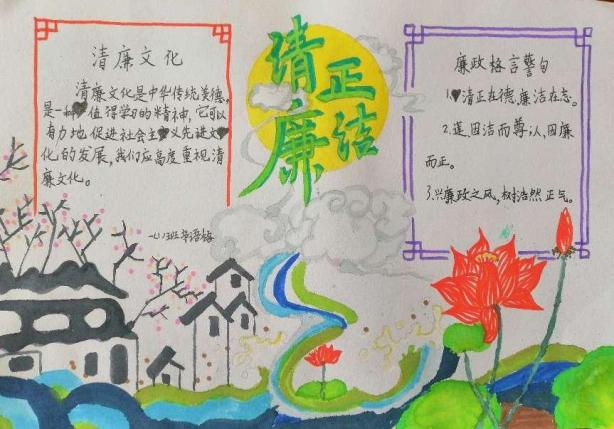 清廉文化
清廉文化是中华传统美德,
是一种值得学习的精神,它可以
有力地促进社会主义先进文
化的发展,我们应高度重视清
廉文化。
清廉
正洁
廉政格言警句
1.清正在德,廉洁在志。
2.莲因洁而尊认,因廉
而正。
3.兴廉政之风,树浩然正气。